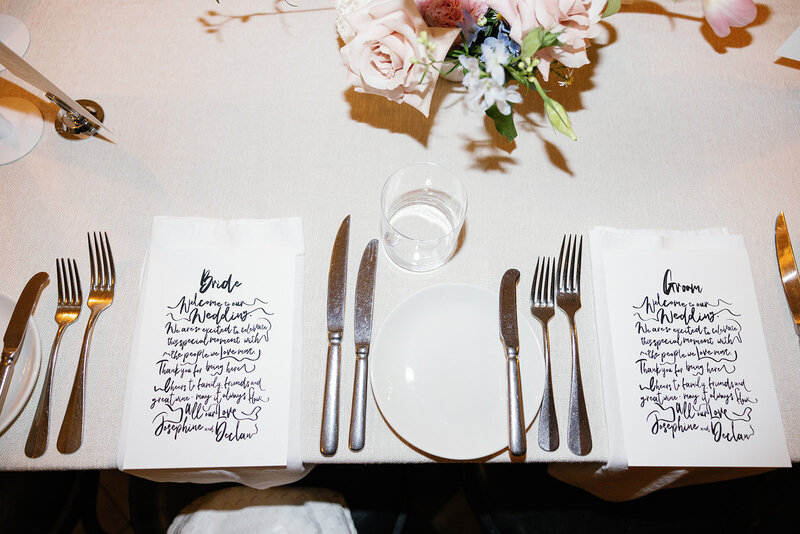 Bride
Welcome to our
Wedding
We are so excited to celebrate
this special moment with
the people we love most.
Thank you for being here
Cheers to family, friends and
great wine - may it always flow
All our Love
Josephine and Declan
Groom
Welcome to our
Wedding
We are so excited to celebrate
this special moment with
the people we love most.
Thank you for being here
Cheers to family, friends and
great wine - may it always flow
All our Love
Josephine and Declan